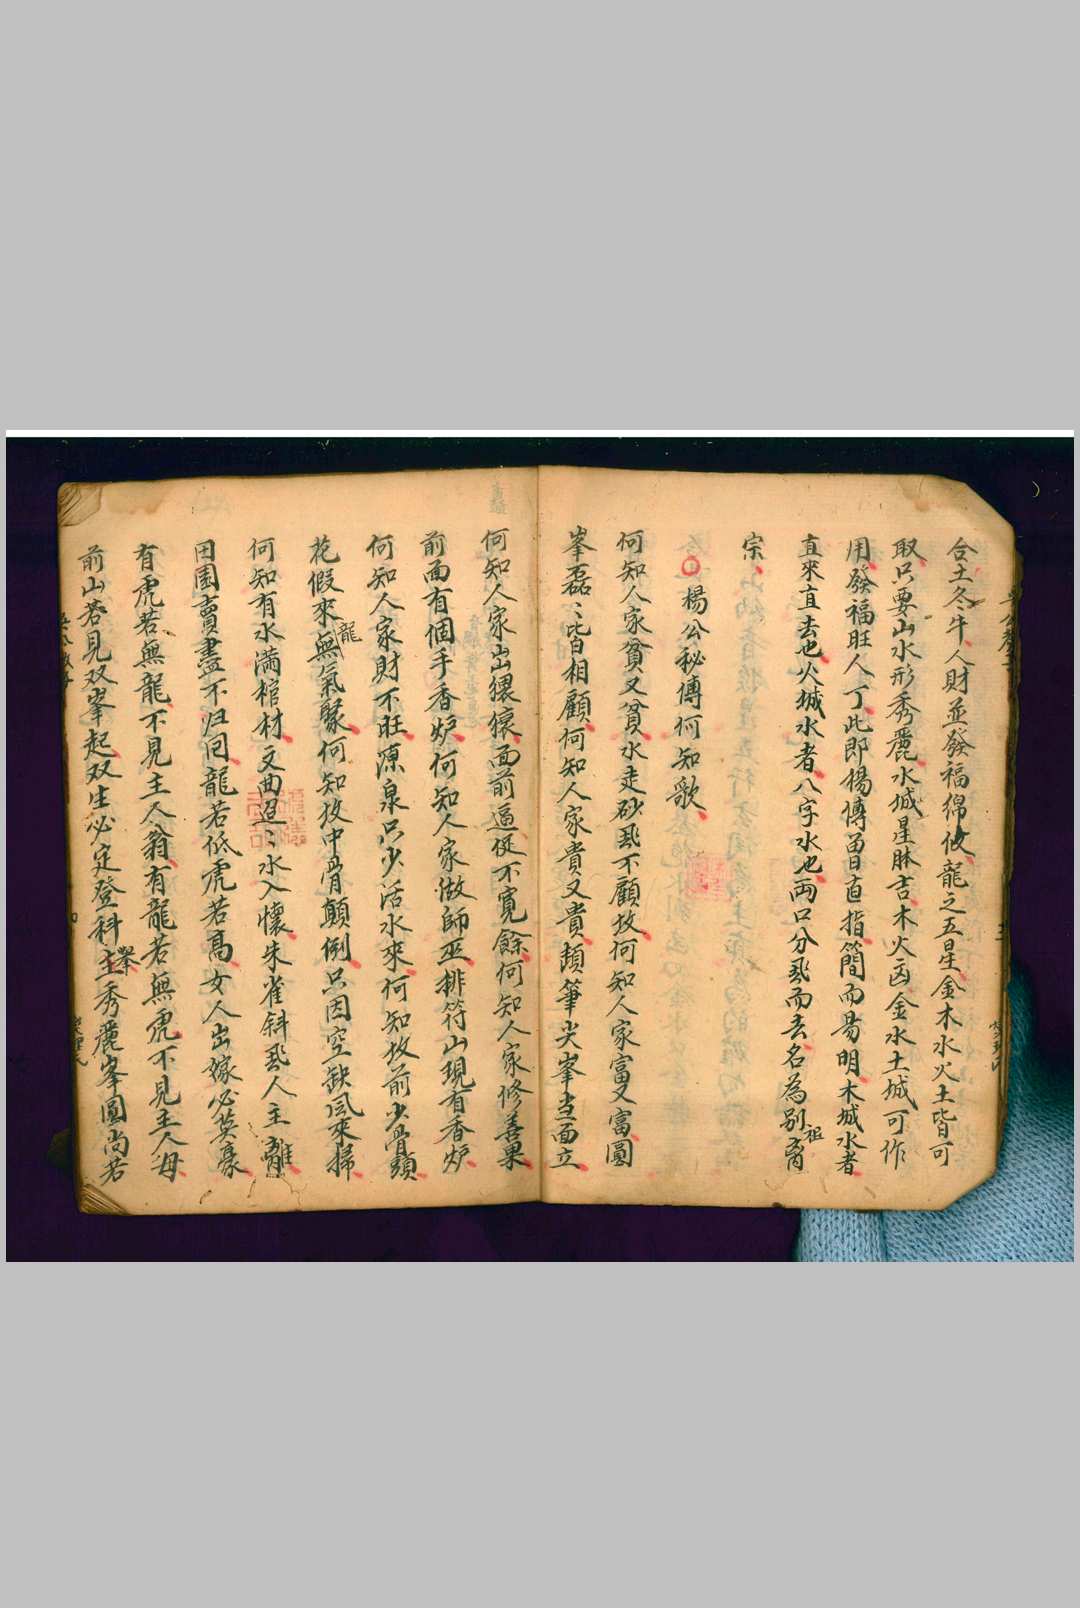 合土冬牛人財並發福綿攸龍之五星金木水火土皆可
取只要山水形秀麗水城星脉吉木火凶金水土城可作
用發福旺人丁此即楊傳畱直指簡而易明木城水者
直來直去也火城水者八字水也兩口分飛而去名為別祖
宗
楊公秘傳何知歌
何知人家貧又貧水走砂飛不顧坟何知人家富又富圓
峯磊〻皆相顧何知人家貴又貴頻筆尖峯当面立
何知人家出猥獕面前逼促不寬餘何知人家修善果
前面有個手香炉何知人家做師巫排符山現有香炉
何知人家財不旺源泉只少活水來何知坟前少骨頭
花假來龍無氣聚何知坟中骨顛倒只因空缺風來掃
何知有水滿棺材文曲〻水入懷朱雀斜飛人主離
田園賣盡不归回龍若低虎若高女人出嫁必英豪
有虎若無龍不見主人翁有龍若無虎不見主人母
前山若見双峯起双生必定登科舉主秀麗峯圓尚若